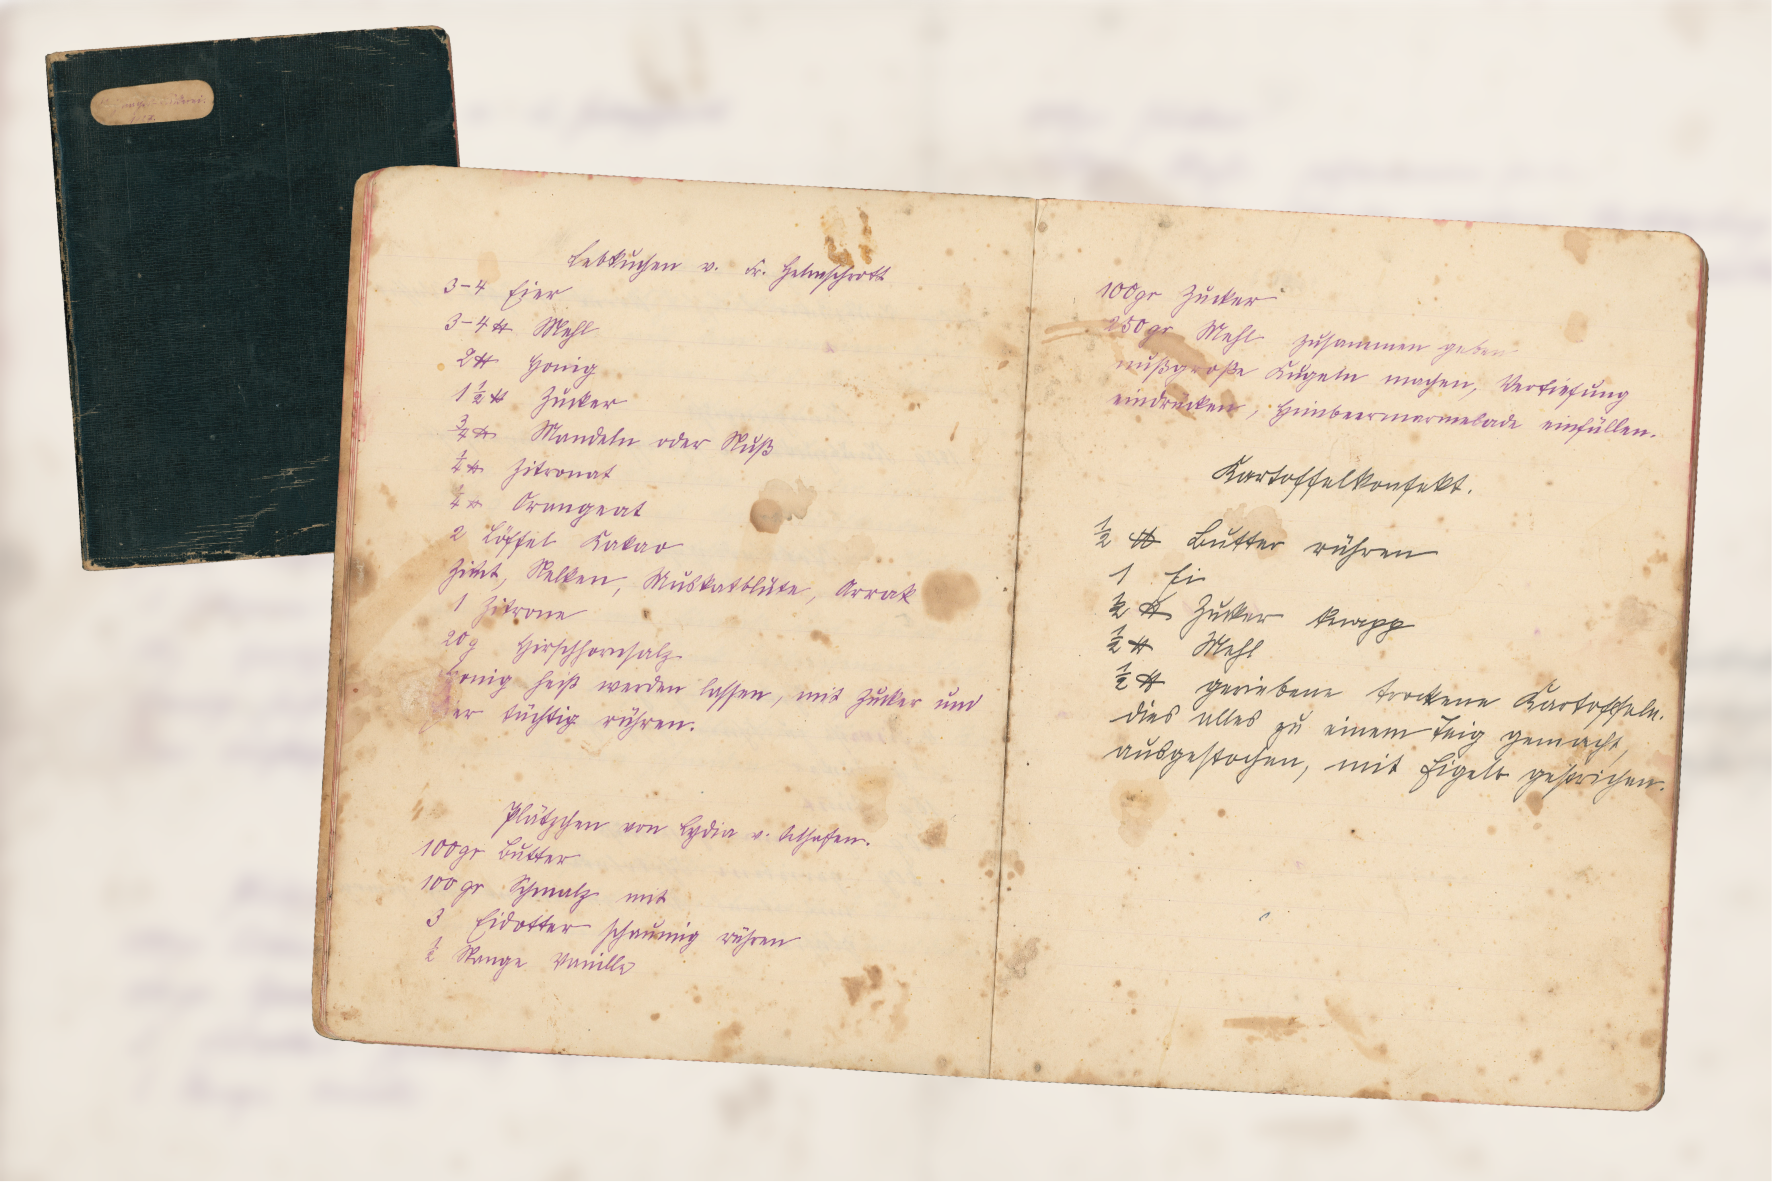 Lebkuchen v. Fr. Helmschrott
3-4 Eier
3-4 ℔ Mehl
2 ℔ Honig
1 ½ ℔ Zucker
¾ ℔ Mandeln oder Nuß
¼ ℔ Zitronat
¼ ℔ Orangeat
2 Löffel Kakao
Zimt, Nelken, Muskatblüte, Arrak
1 Zitrone
20g Hirschhornsalz
Honig heiß werden lassen, mit Zucker und
Eier tüchtig rühren.
Plätzchen von Lydia v.
100gr Butter
100 gr Schmalz mit
3 Eidotter schaumig rühren
½ Stange Vanille
100gr Zucker
250gr Mehl zusammen geben
nußgroße Kugeln machen, Vertiefung
eindrücken, Himbeermarmelade einfüllen.
Kartoffelkonfekt.
½ ℔ Butter rühren
1 Ei
½ ℔ Zucker knapp
½ ℔ Mehl
½ ℔ geriebene trockene Kartoffeln.
dies alles zu einem Teig gemacht,
ausgestochen, mit Eigelb gestrichen.